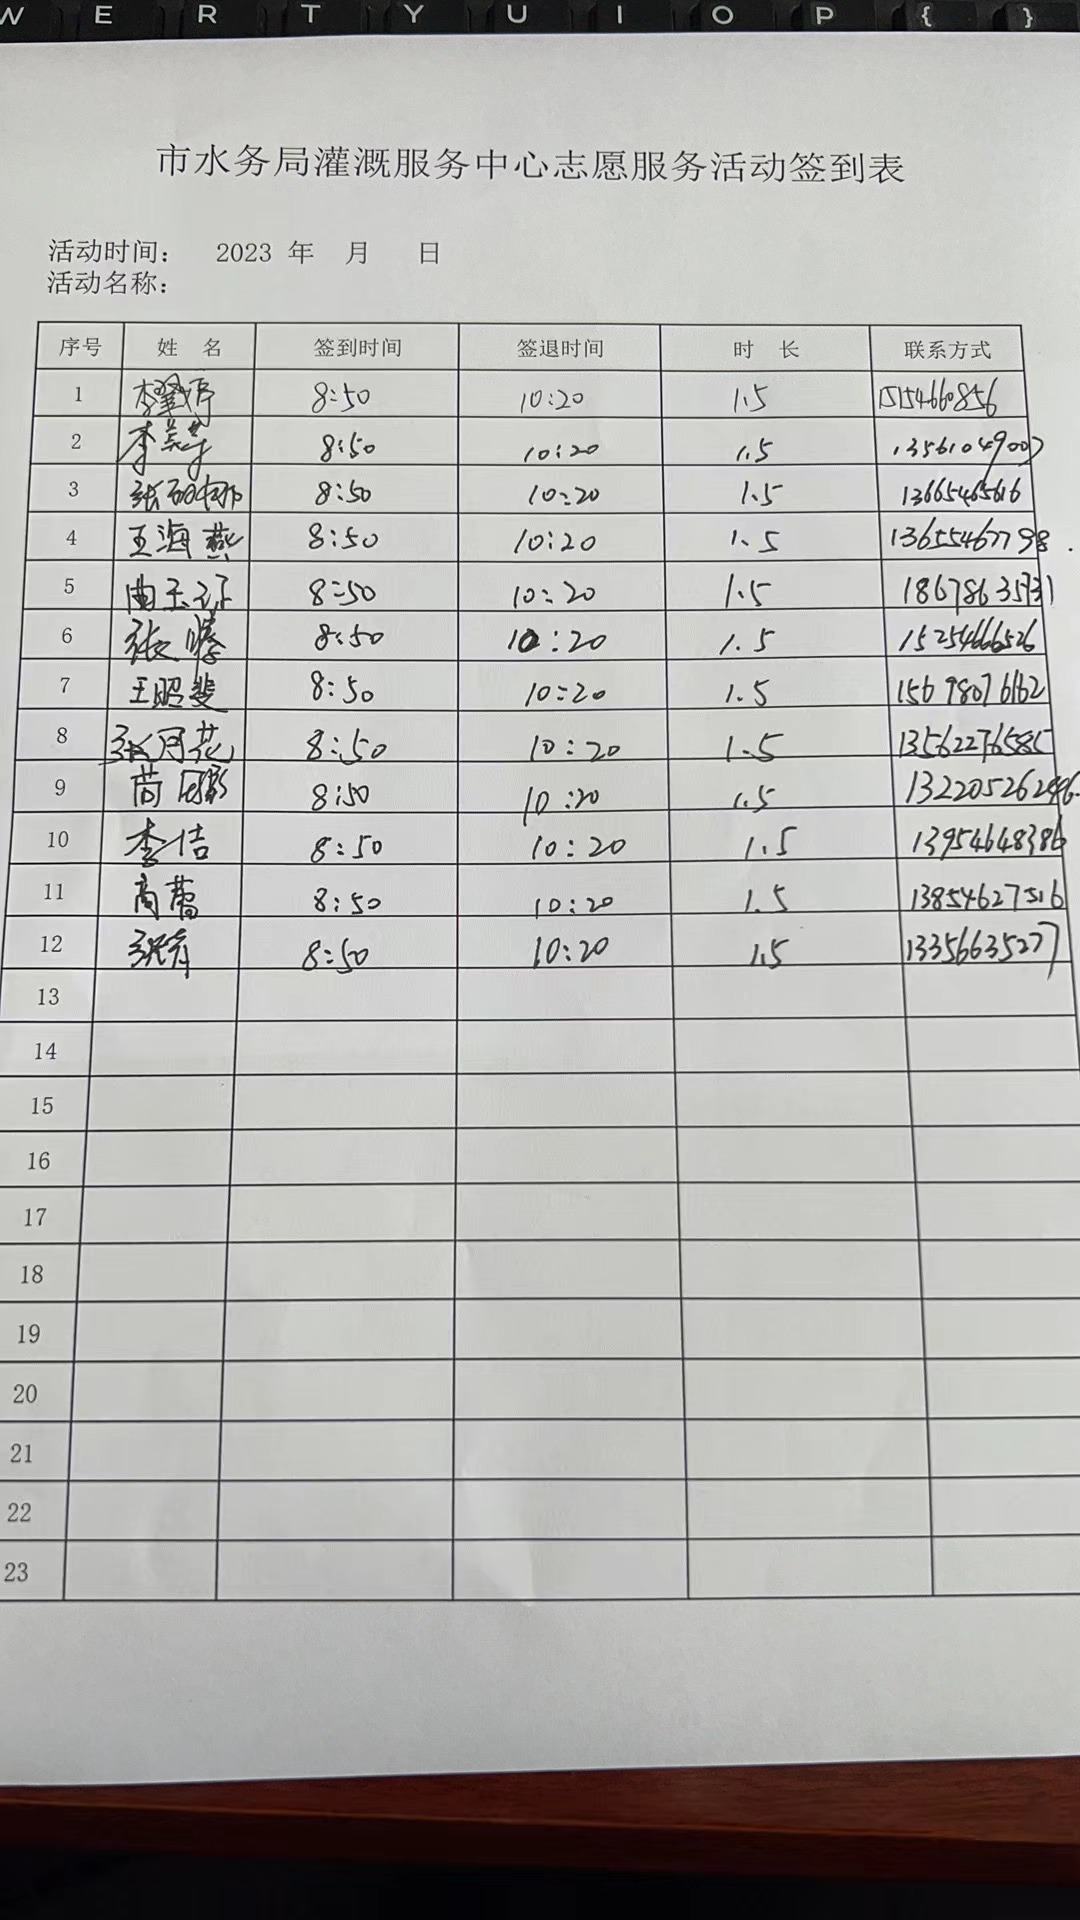 W E R T Y U I O P { }
市水务局灌溉服务中心志愿服务活动签到表
活动时间： 2023 年 月 日
活动名称：
序号 姓 名 签到时间 签退时间 时 长 联系方式
1 李翠婷 8:50 10:20 1.5 15154660856
2 李美萍 8:50 10:20 1.5 13561049007
3 张 8:50 10:20 1.5 13665465616
4 王海燕 8:50 10:20 1.5 13655467798
5 曲玉 8:50 10:20 1.5
6 张 8:50 10:20 1.5 15254666526
7 王昭斐 8:50 10:20 1.5 15698076162
8 张月花 8:50 10:20 1.5 13562276585
9 8:50 10:20 1.5
10 李洁 8:50 10:20 1.5 13954648386
11 高蕾 8:50 10:20 1.5 13854627516
12 8:50 10:20 1.5 13356635277
13
14
15
16
17
18
19
20
21
22
23